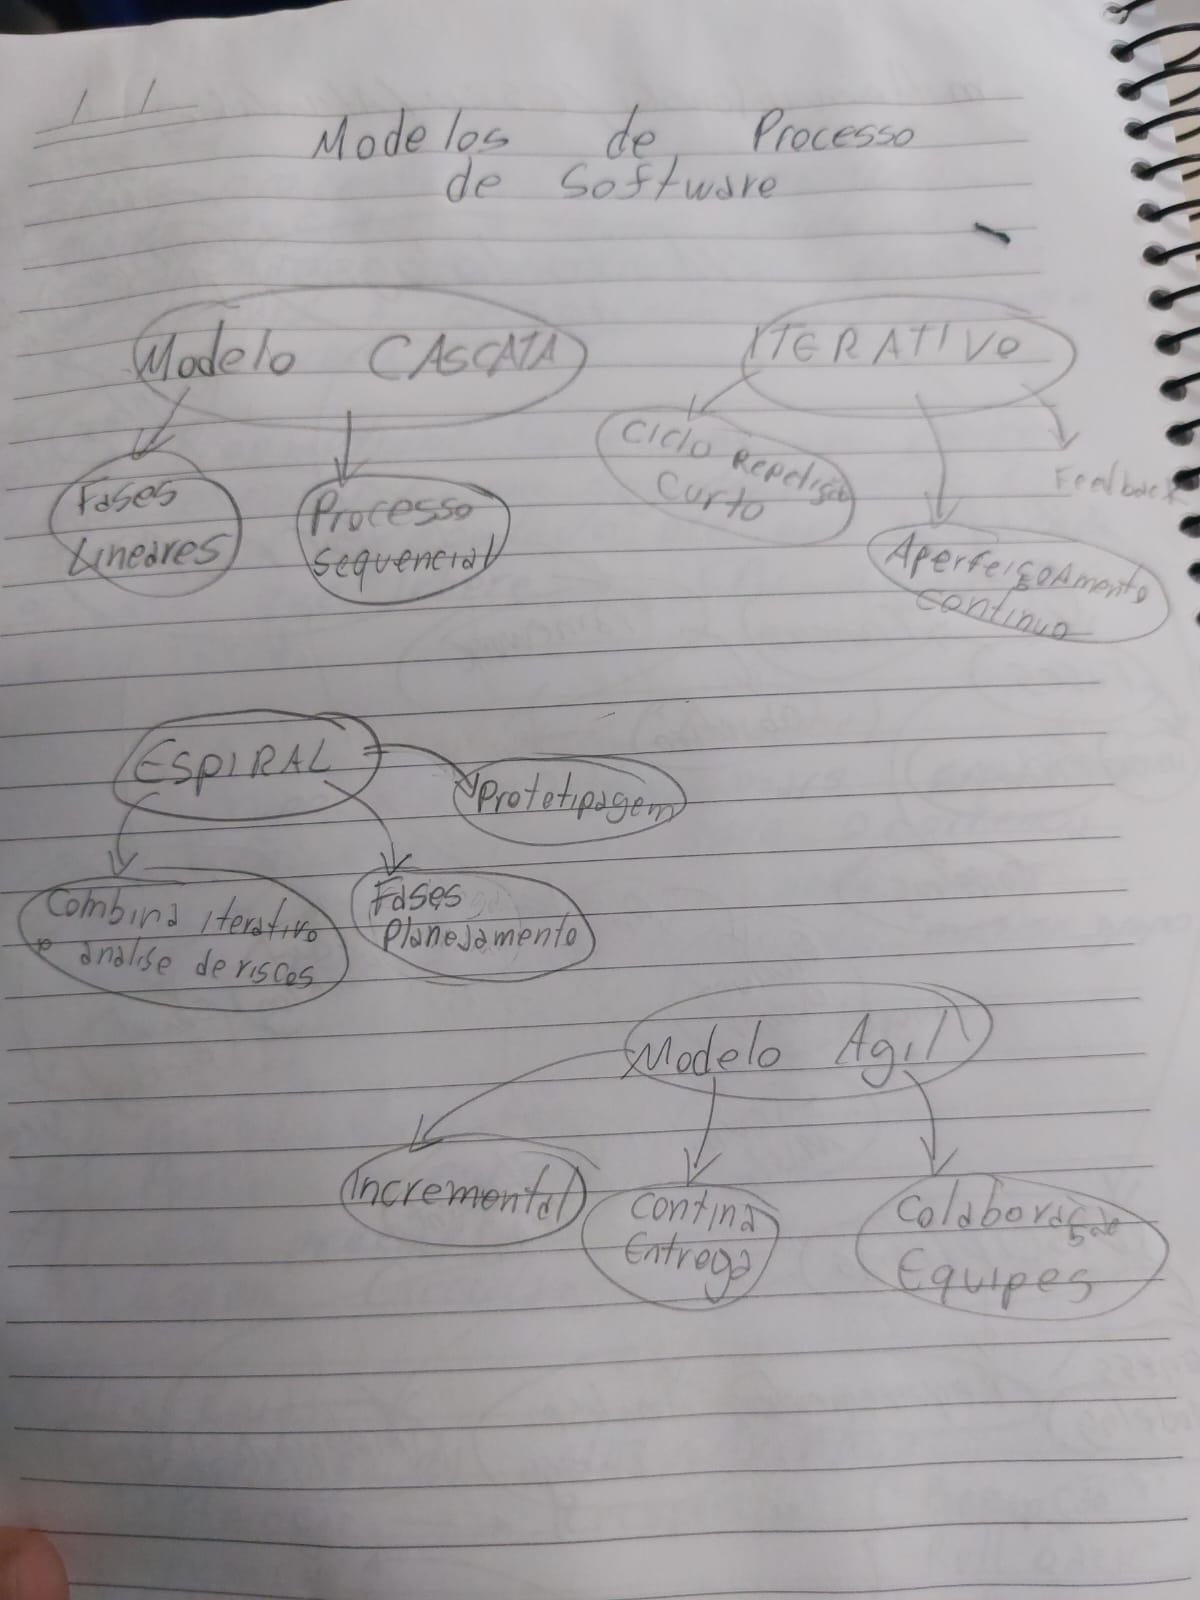 Modelos de Processo
de Software
Modelo CASCATA
Fases
Lineares
Processo
Sequencial
ITERATIVO
Ciclo Repetição
Curto
Feedback
Aperfeiçoamento
continuo
ESPIRAL
Prototipagem
Combina iterativo
e analise de riscos
Fases
Planejamento
Modelo Agil
Incremental
Contina
Entrega
Colaboração
Equipes